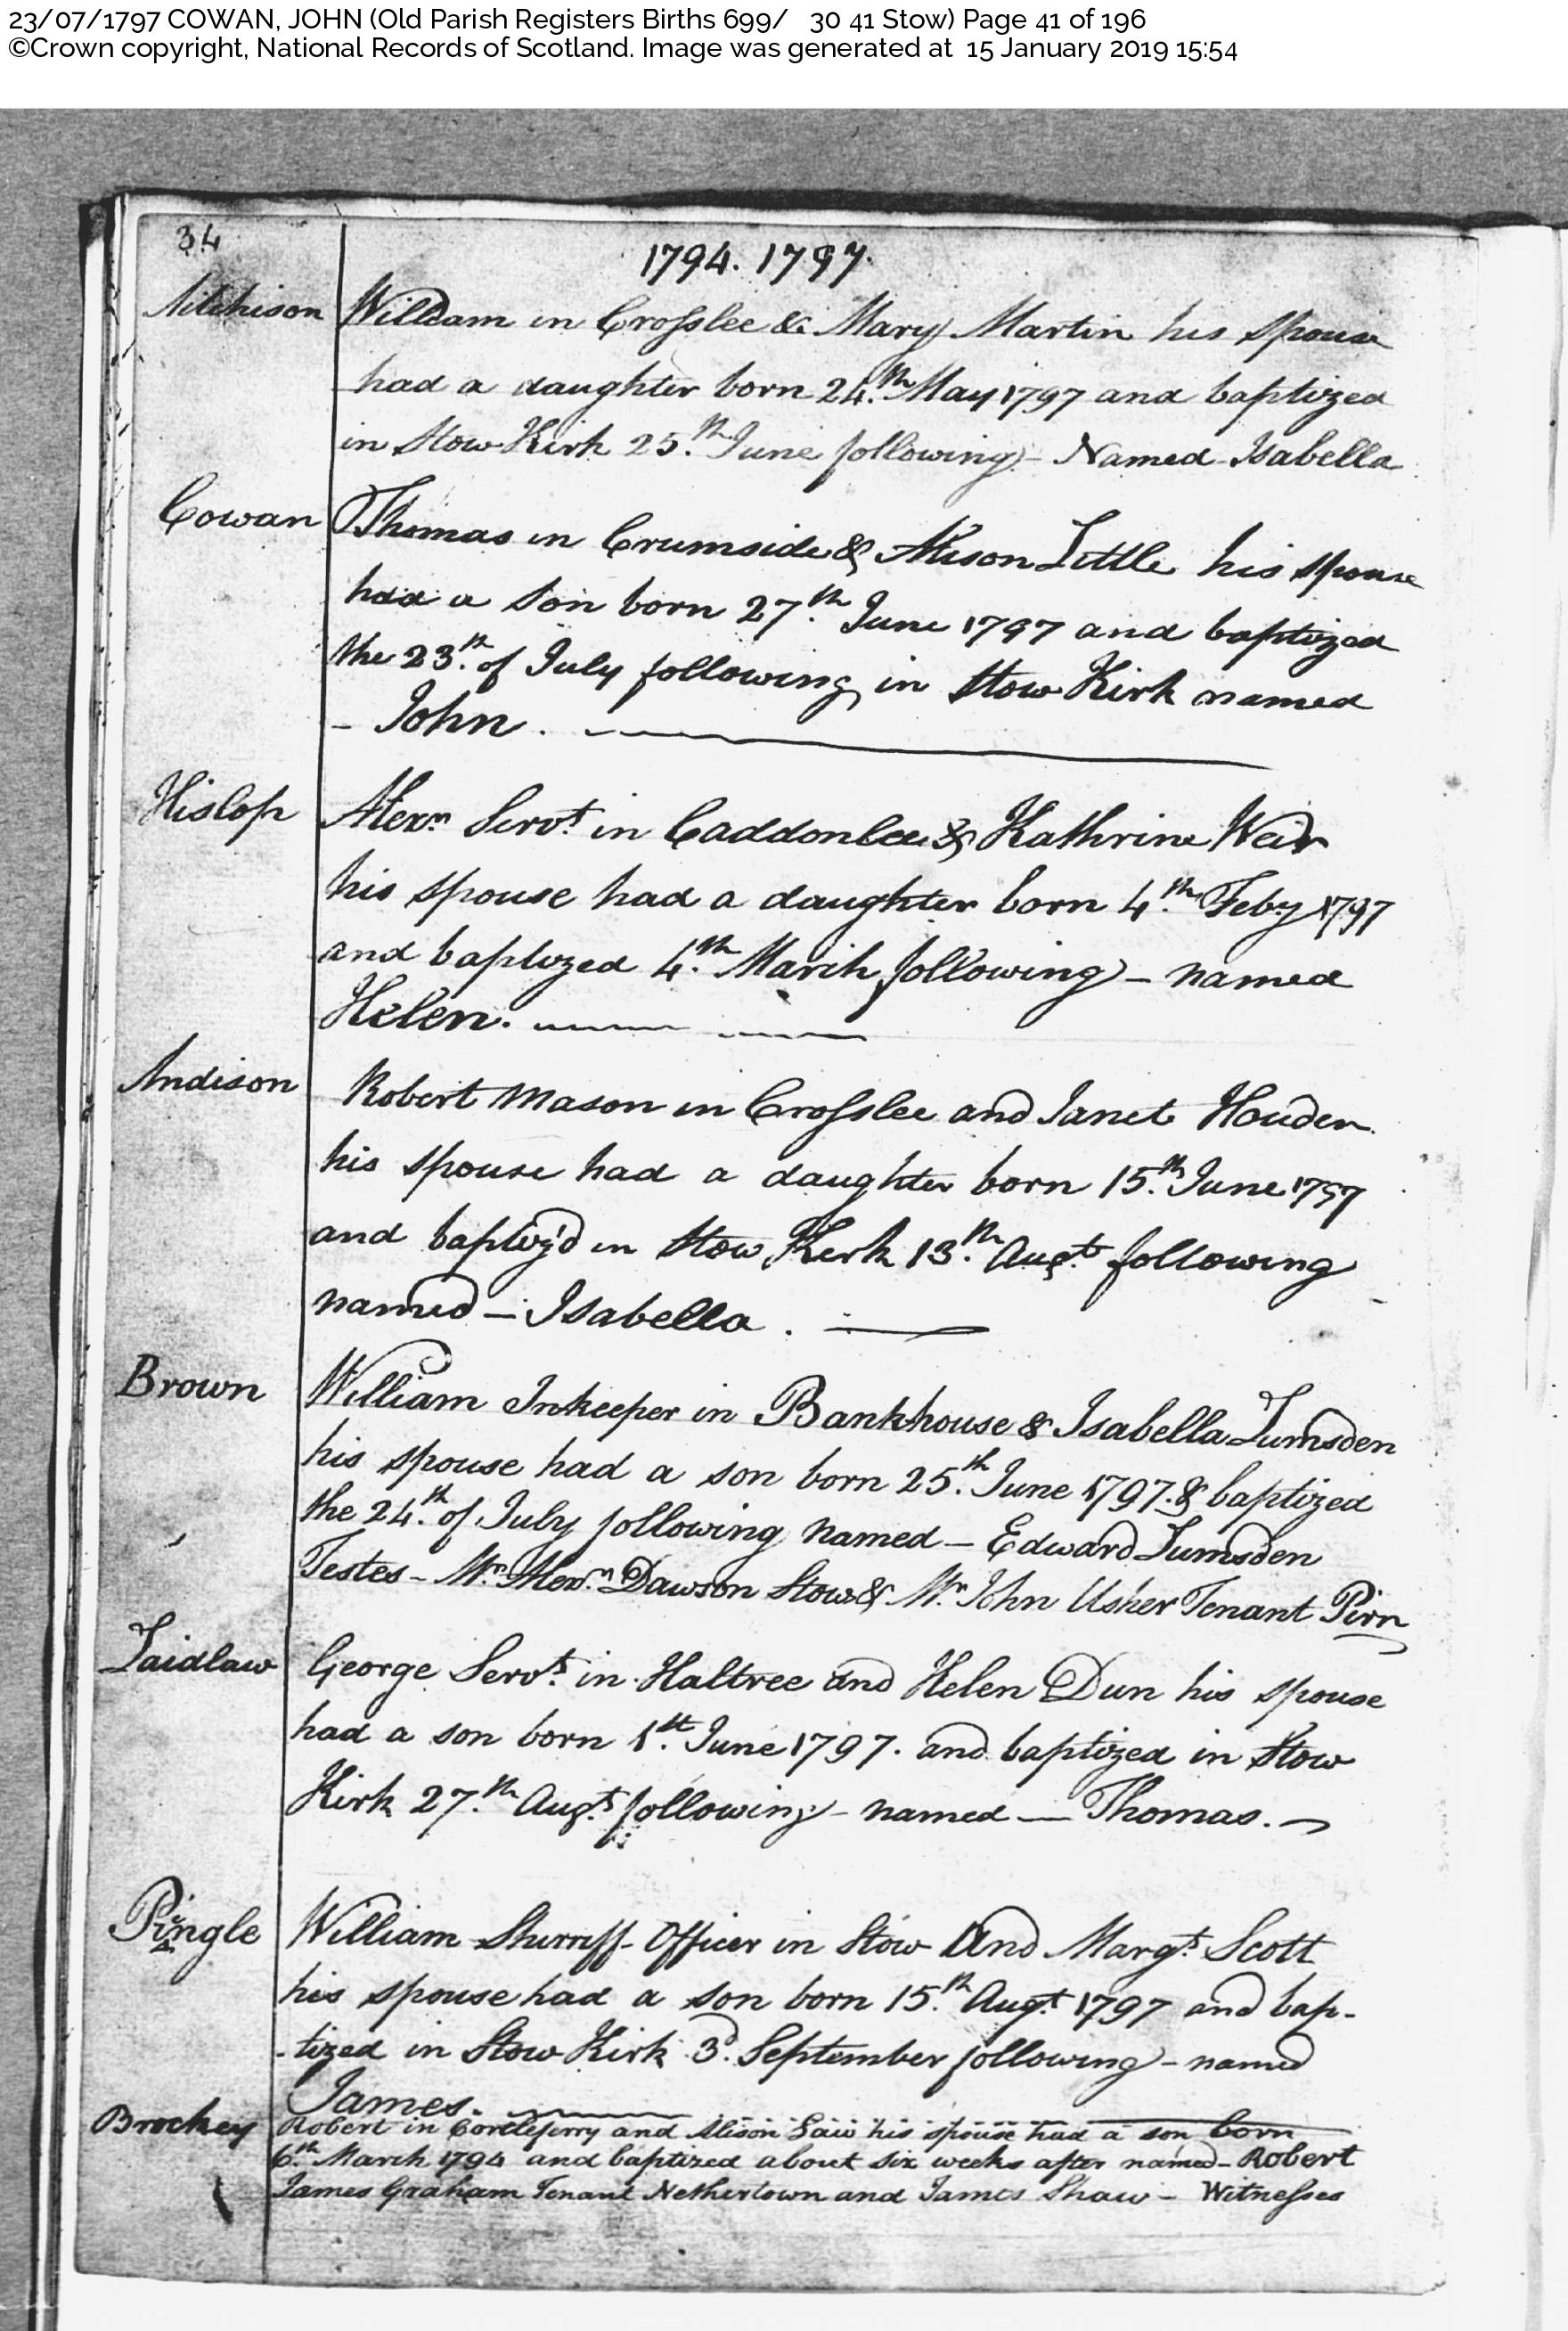 23/07/1797 COWAN, JOHN (Old Parish Registers Births 699/ 30 41 Stow) Page 41 of 196
©Crown copyright, National Records of Scotland. Image was generated at 15 January 2019 15:54
34
1794. 1797.
Aitchison William in Crosslee & Mary Martin his spouse
had a daughter born 24.th May 1797 and baptized
in Stow Kirk 25.th June following - Named Isabella
Cowan Thomas in Crumside & Alison Little his spouse
had a son born 27.th June 1797 and baptized
the 23.th of July following in Stow Kirk named
- John.
Hislop Alexr. Servt. in Caddonlee & Kathrine Weir
his spouse had a daughter born 4.th Feby 1797
and baptized 4.th March following - named
Helen.
Andison Robert Mason in Crosslee and Janet Houden
his spouse had a daughter born 15.th June 1797
and baptiz'd in Stow Kirk 13.th Augt. following
named - Isabella.
Brown William Inkeeper in Bankhouse & Isabella Lumsden
his spouse had a son born 25.th June 1797. & baptized
the 24.th of July following named - Edward Lumsden
Testes - Mr. Alexr. Dawson Stow & Mr. John Usher Tenant Pirn
Laidlaw George Servt. in Haltree and Helen Dun his spouse
had a son born 1.st June 1797. and baptized in Stow
Kirk 27.th Augt. following - named - Thomas.
Pingle William Sherriff Officer in Stow And Margt. Scott
his spouse had a son born 15.th Augt. 1797 and bap-
-tized in Stow Kirk 3.d September following - named
James.
Brockey Robert in Cortleferry and Alison Law his spouse had a son born
6.th March 1794 and baptized about six weeks after named - Robert
James Graham Tenant Nethertown and James Shaw - Witnesses